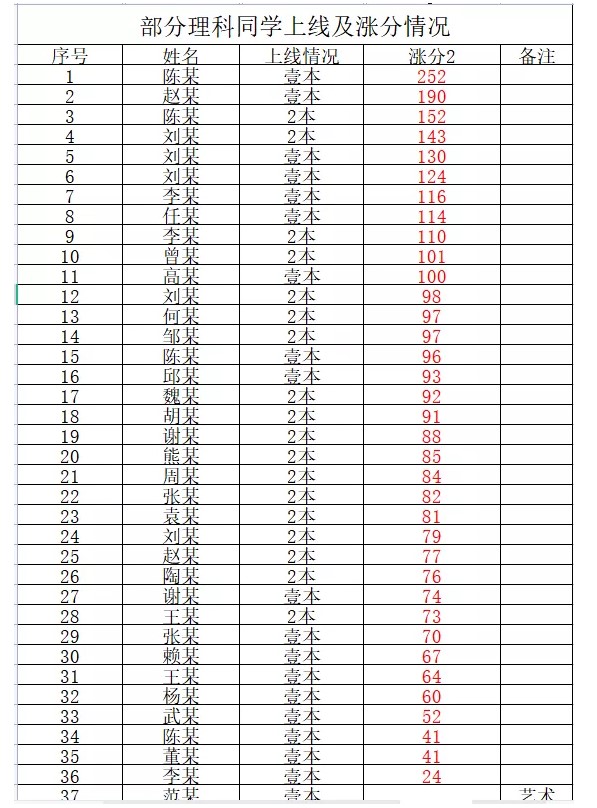 部分理科同学上线及涨分情况
序号 姓名 上线情况 涨分2 备注
1 陈某 壹本 252
2 赵某 壹本 190
3 陈某 2本 152
4 刘某 2本 143
5 刘某 壹本 130
6 刘某 壹本 124
7 李某 壹本 116
8 任某 壹本 114
9 李某 2本 110
10 曾某 2本 101
11 高某 壹本 100
12 刘某 2本 98
13 何某 2本 97
14 邹某 2本 97
15 陈某 壹本 96
16 邱某 壹本 93
17 魏某 2本 92
18 胡某 2本 91
19 谢某 2本 88
20 熊某 2本 85
21 周某 2本 84
22 张某 2本 82
23 袁某 2本 81
24 刘某 2本 79
25 赵某 2本 77
26 陶某 2本 76
27 谢某 壹本 74
28 王某 2本 73
29 张某 壹本 70
30 赖某 壹本 67
31 王某 壹本 64
32 杨某 壹本 60
33 武某 壹本 52
34 陈某 壹本 41
35 董某 壹本 41
36 李某 壹本 24
37 范某 壹本 艺术